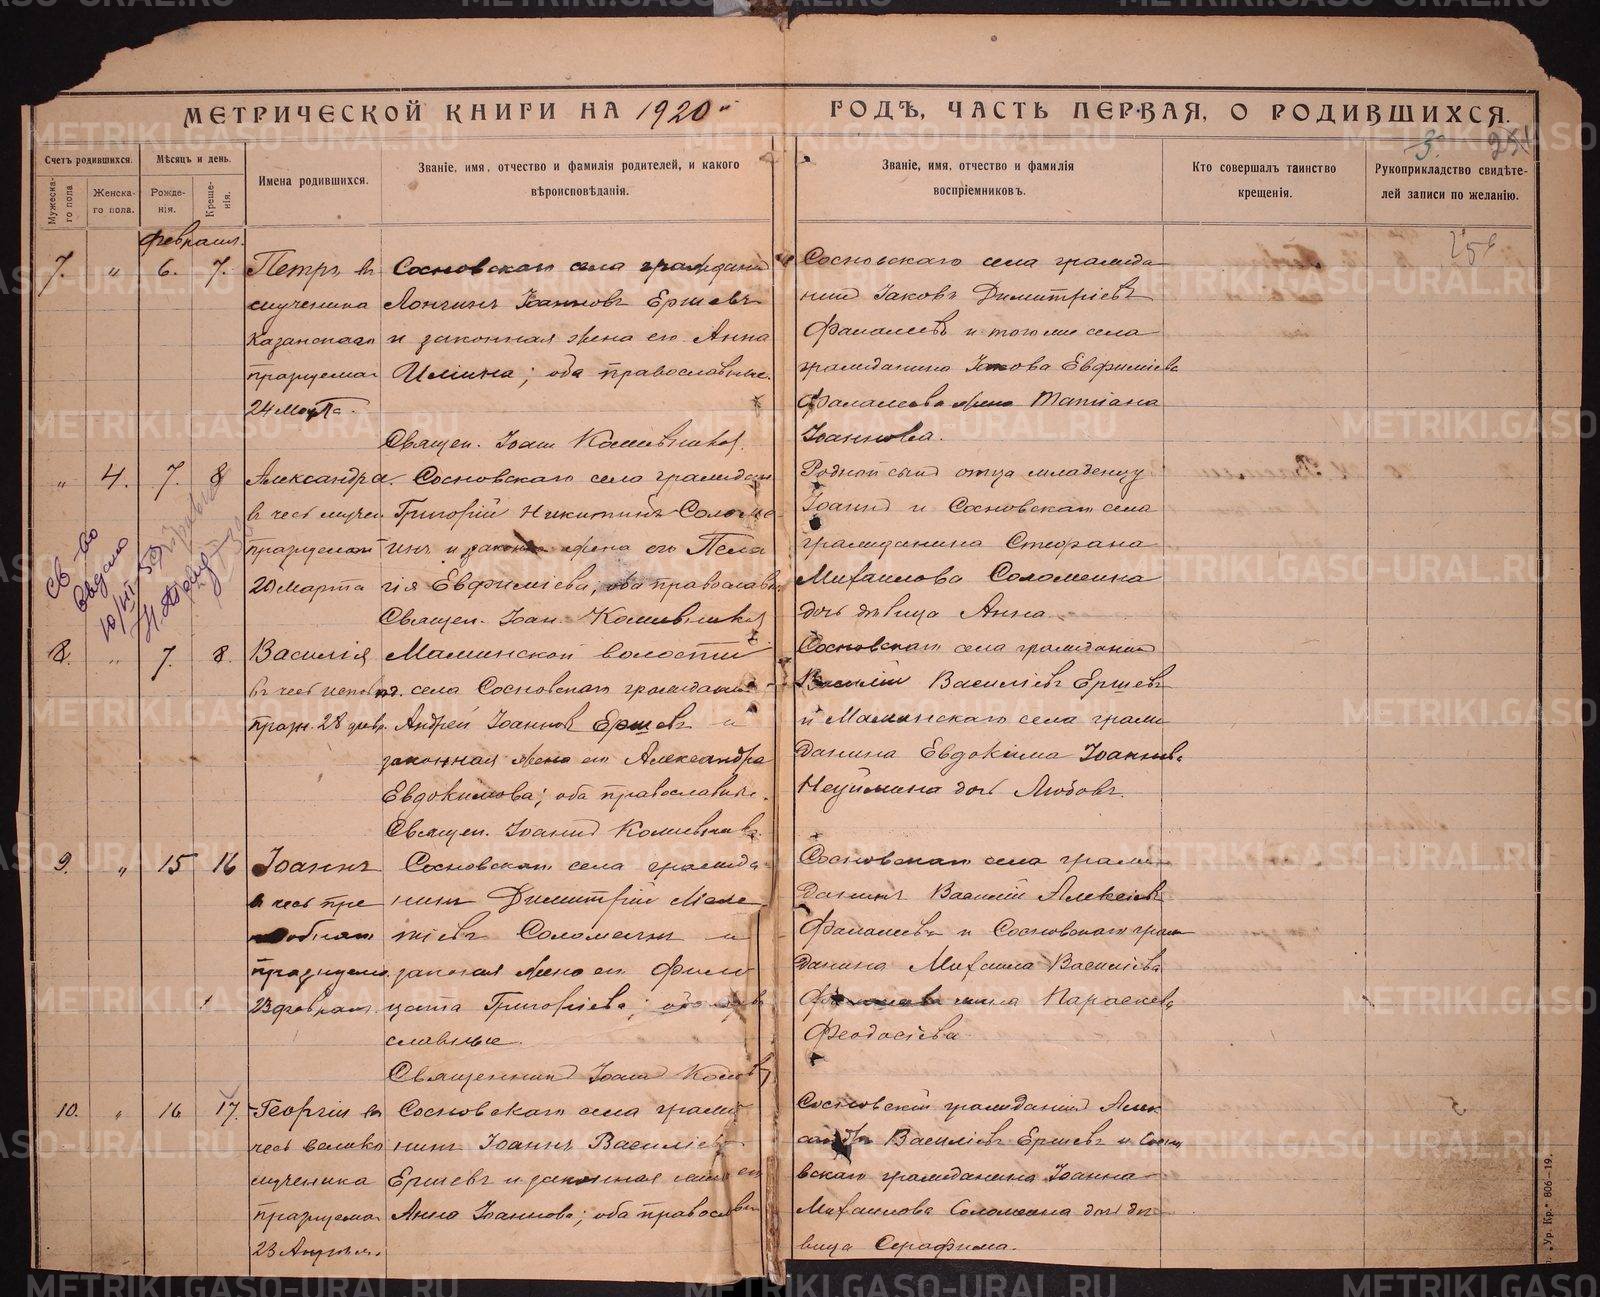 МЕТРИЧЕСКОЙ КНИГИ НА 1920 ГОДЪ, ЧАСТЬ ПЕРВАЯ, О РОДИВШИХСЯ.
Счетъ родившихся.
Мѣсяцъ и день.
Имена родившихся.
Званіе, имя, отчество и фамилія родителей, и какого
вѣроисповѣданія.
Званіе, имя, отчество и фамилія
воспріемниковъ.
Кто совершалъ таинство
крещенія.
Рукоприкладство свидѣте-
лей записи по желанію.
Мужеска-
го пола.
Женска-
го пола.
Рожде-
нія.
Креще-
нія.
февраля.
7. " 6. 7.
Петръ въ
мученика
Казанскаго
празднуемаго
24 Марта.
Сосновскаго села гражданин
Лонгинъ Іоанновъ Ершевъ
и законная жена его Анна
Иліина; оба православные.
Священ. Іоанн
Сосновскаго села гражда
нин Іаковъ Димитріевъ
Фалалеевъ и того же села
гражданина Іакова Евфиміева
Фалалеева жена Татіана
Іоаннова.
" 4. 7. 8
Александра
в чест мучен.
празднуемой
20 Марта
Сосновскаго села граждан
Григорій Никитинъ Солома
инъ и законная жена его Пела
гія Евфиміева; оба православн
Священ. Іоан.
Родной сын отца младенцу
Іоанн и Сосновскаго села
гражданина Стефана
Михаилова Соломеина
дочь дѣвица Анна
8. " 7. 8.
Василія
въ чест исповѣд.
празн. 28 февр.
Маминской волости
села Сосновскаго гражданин
Андрей Іоаннов Ершевъ и
законная жена его Александра
Евдокимова; оба православные.
Священ. Іоанн
Сосновскаго села гражданин
Василій Василіевъ Ершевъ
и Маминскаго села граж
данина Евдокима Іоаннова
Неуймина дочь Любовь.
9. " 15 16
Іоаннъ
в чест пре
подобнаго
празднуемо
23 феврал.
Сосновскаго села гражда
нинъ Димитрій Меле
тіевъ Соломеинъ и
законная жена его Фили
цата Григоріева; оба право
славные.
Священник Іоанн
Сосновскаго села граж
данинъ Василій Алексіевъ
Фалалеевъ и Сосновскаго граж
данина Михаила Василіева
жена Параскева
Феодосіева
10. " 16 17.
Георгій въ
чест велико
мученика
празднуема
23 Апрѣля.
Сосновскаго села граж
нинъ Іоаннъ Василіев
Ершевъ и законная жена его
Анна Іоаннова; оба православн
Сосновскій гражданин Алек
сандръ Василіевъ Ершевъ и Сосн
вскаго гражданина Іоанна
Михаилова Соломеина дочь дѣ
вица Серафима.
„Ур. Кр." 806—19.
METRIKI.GASO-URAL.RU